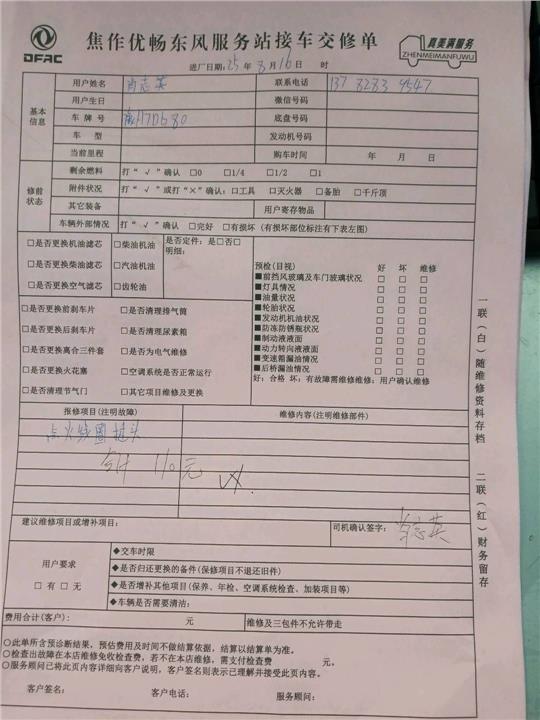 DFAC
焦作优畅东风服务站接车交修单
真美满服务
ZHENMEIMANFUWU
进厂日期: 25 年 8 月 16 日 时
基本信息
用户姓名 联系电话 137 8283 9547
用户生日 微信号码
车牌号 底盘号码
车 型 发动机号码
当前里程 购车时间 年 月 日
修前状态
剩余燃料 打“√”确认 □0 □1/4 □1/2 □1
附件状况 打“√”或打“×”确认: □工具 □灭火器 □备胎 □千斤顶
其它装备 用户寄存物品
车辆外部情况 打“√”确认 □完好 □有损坏 (有损坏部位标注有下表左图)
□是否更换机油滤芯 □柴油机油 是否定件: 是□否□
明细:
□是否更换柴油滤芯 □汽油机油
□是否更换空气滤芯 □齿轮油
预检(目视) 好 坏 维修
■前挡风玻璃及车门玻璃状况 □ □ □
■灯具情况 □ □ □
■油量状况 □ □ □
■轮胎状况 □ □ □
■发动机机油状况 □ □ □
■防冻防锈瓶状况 □ □ □
■制动液液面 □ □ □
■动力转向液液面 □ □ □
■变速箱漏油情况 □ □ □
■后桥漏油情况 □ □ □
好: 合格 坏: 有故障需维修维修: 用户确认维修
□是否更换前刹车片 □是否清理排气筒
□是否更换后刹车片 □是否清理尿素箱
□是否更换离合三件套 □是否为电气维修
□是否更换火花塞 □空调系统是否正常运行
□是否清理节气门 □其它项目维修及更换
报修项目(注明故障) 维修内容(注明维修部件)
点火线圈插头
合计 110元
建议维修项目或增补项目: 司机确认签字:
用户要求
□有 □无
◆交车时限
◆是否归还更换的备件(保修项目不退还旧件)
◆是否增补其他项目(保养、年检、空调系统检查、加装项目等)
◆车辆是否需要清洁:
费用合计(客户): 元 维修及三包件不允许带走
○此单所含预诊断结果, 预估费用及时间不做结算依据, 结算以结算单为准。
○检查出故障在本店维修免收检查费, 若不在本店维修, 需支付检查费 元。
○服务顾问已将此页内容详细向客户说明, 客户签名则表示已理解并接受此页内容。
客户签名: 客户电话: 服务顾问:
一联(白)随维修资料存档
二联(红)财务留存